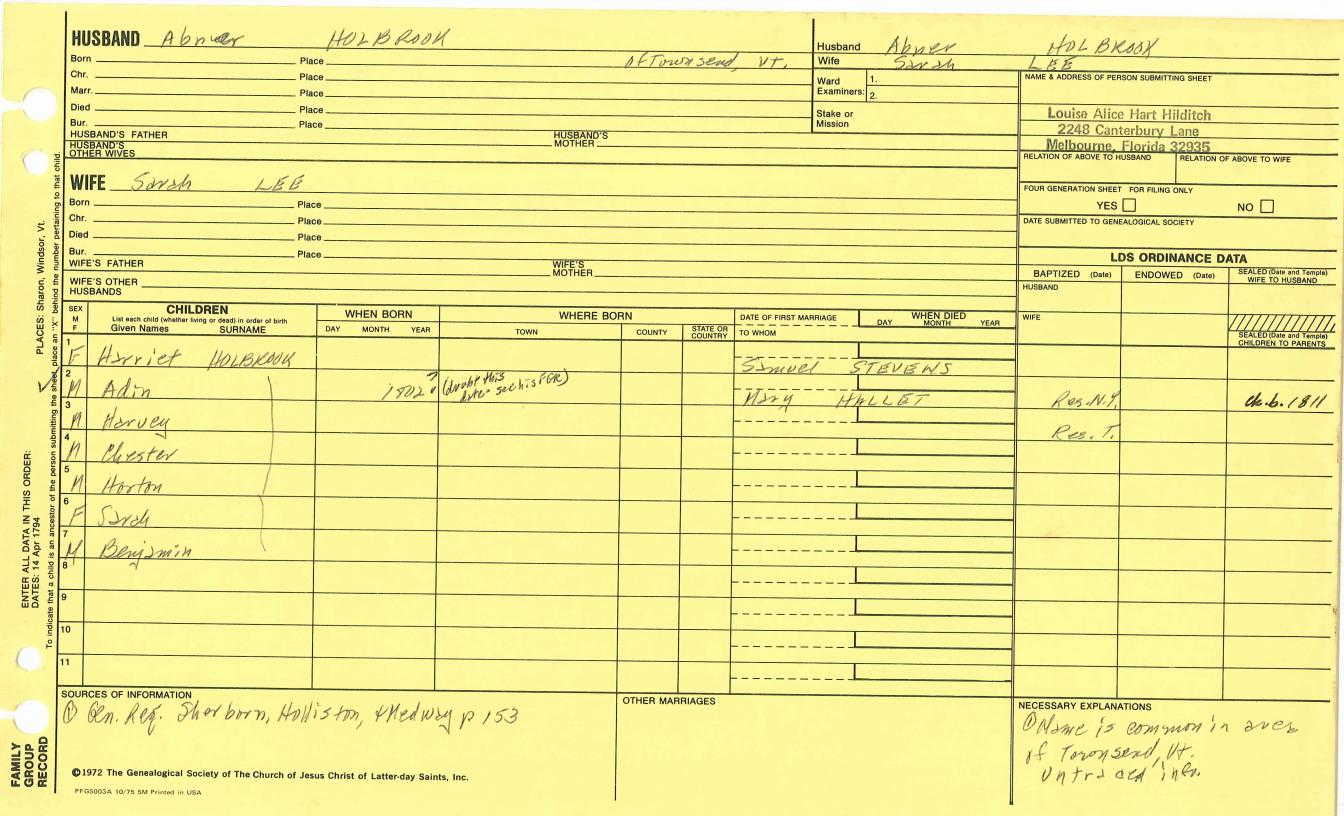 HUSBAND Abner HOLBROOK
Born Place of Townsend, Vt.
Chr. Place
Marr. Place
Died Place
Bur. Place
HUSBAND'S FATHER HUSBAND'S MOTHER
HUSBAND'S OTHER WIVES
Husband Abner HOLBROOK
Wife Sarah LEE
Ward Examiners: 1.
2.
Stake or Mission
NAME & ADDRESS OF PERSON SUBMITTING SHEET
Louise Alice Hart Hilditch
2248 Canterbury Lane
Melbourne, Florida 32935
RELATION OF ABOVE TO HUSBAND RELATION OF ABOVE TO WIFE
FOUR GENERATION SHEET FOR FILING ONLY
YES NO
DATE SUBMITTED TO GENEALOGICAL SOCIETY
WIFE Sarah LEE
Born Place
Chr. Place
Died Place
Bur. Place
WIFE'S FATHER WIFE'S MOTHER
WIFE'S OTHER HUSBANDS
LDS ORDINANCE DATA
BAPTIZED (Date) ENDOWED (Date) SEALED (Date and Temple) WIFE TO HUSBAND
HUSBAND
WIFE
SEALED (Date and Temple) CHILDREN TO PARENTS
SEX M F
CHILDREN
List each child (whether living or dead) in order of birth
Given Names SURNAME
WHEN BORN
DAY MONTH YEAR
WHERE BORN
TOWN COUNTY STATE OR COUNTRY
DATE OF FIRST MARRIAGE
TO WHOM
WHEN DIED
DAY MONTH YEAR
1 F Harriet HOLBROOK Samuel STEVENS
2 M Adin 1802? (doubt this date - see his FGR) Mary HALLET Res. N.Y. ch. b. 1811
3 M Harvey Res. T.
4 M Chester
5 M Horton
6 F Sarah
7 M Benjamin
8
9
10
11
SOURCES OF INFORMATION
① Gen. Reg. Sherborn, Holliston, & Medway p 153
OTHER MARRIAGES
NECESSARY EXPLANATIONS
① Name is common in area
of Townsend, Vt.
Untraced info.
©1972 The Genealogical Society of The Church of Jesus Christ of Latter-day Saints, Inc.
PFGS003A 10/75 5M Printed in USA
FAMILY GROUP RECORD
ENTER ALL DATA IN THIS ORDER:
DATES: 14 Apr 1794 PLACES: Sharon, Windsor, Vt.
To indicate that a child is an ancestor of the person submitting the sheet, place an "X" behind the number pertaining to that child.